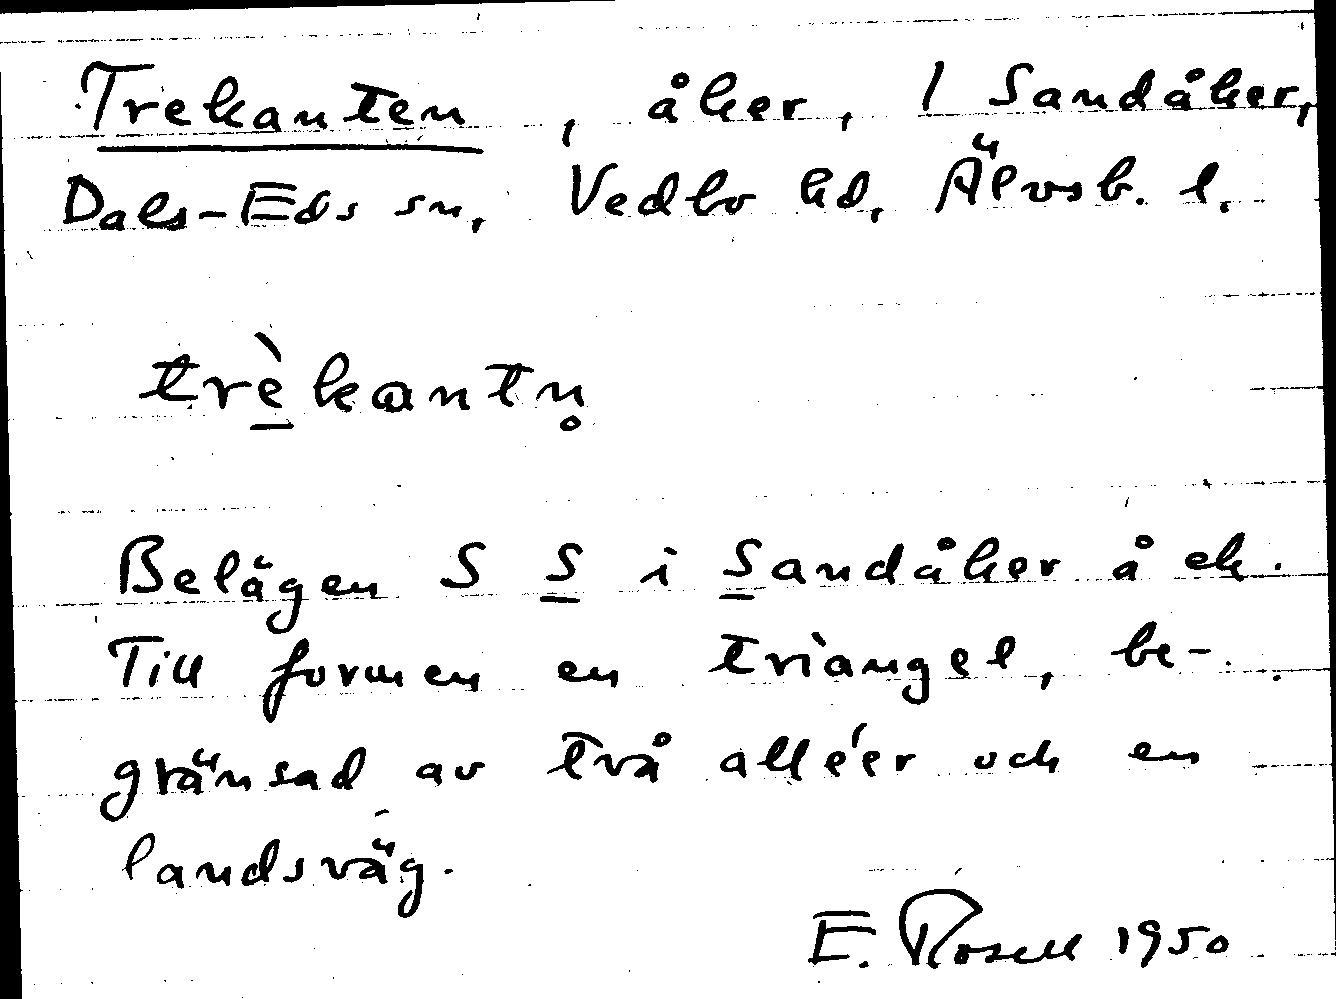 Trekanten, åker, 1 Sandåker,
Dals-Eds sn, Vedbo hd, Älvsb. l.
trè̱kantn̥
Belägen S S i Sandåker å ek.
Till formen en triangel, be-
gränsad av två alléer och en
landsväg.
E. Rosell 1950